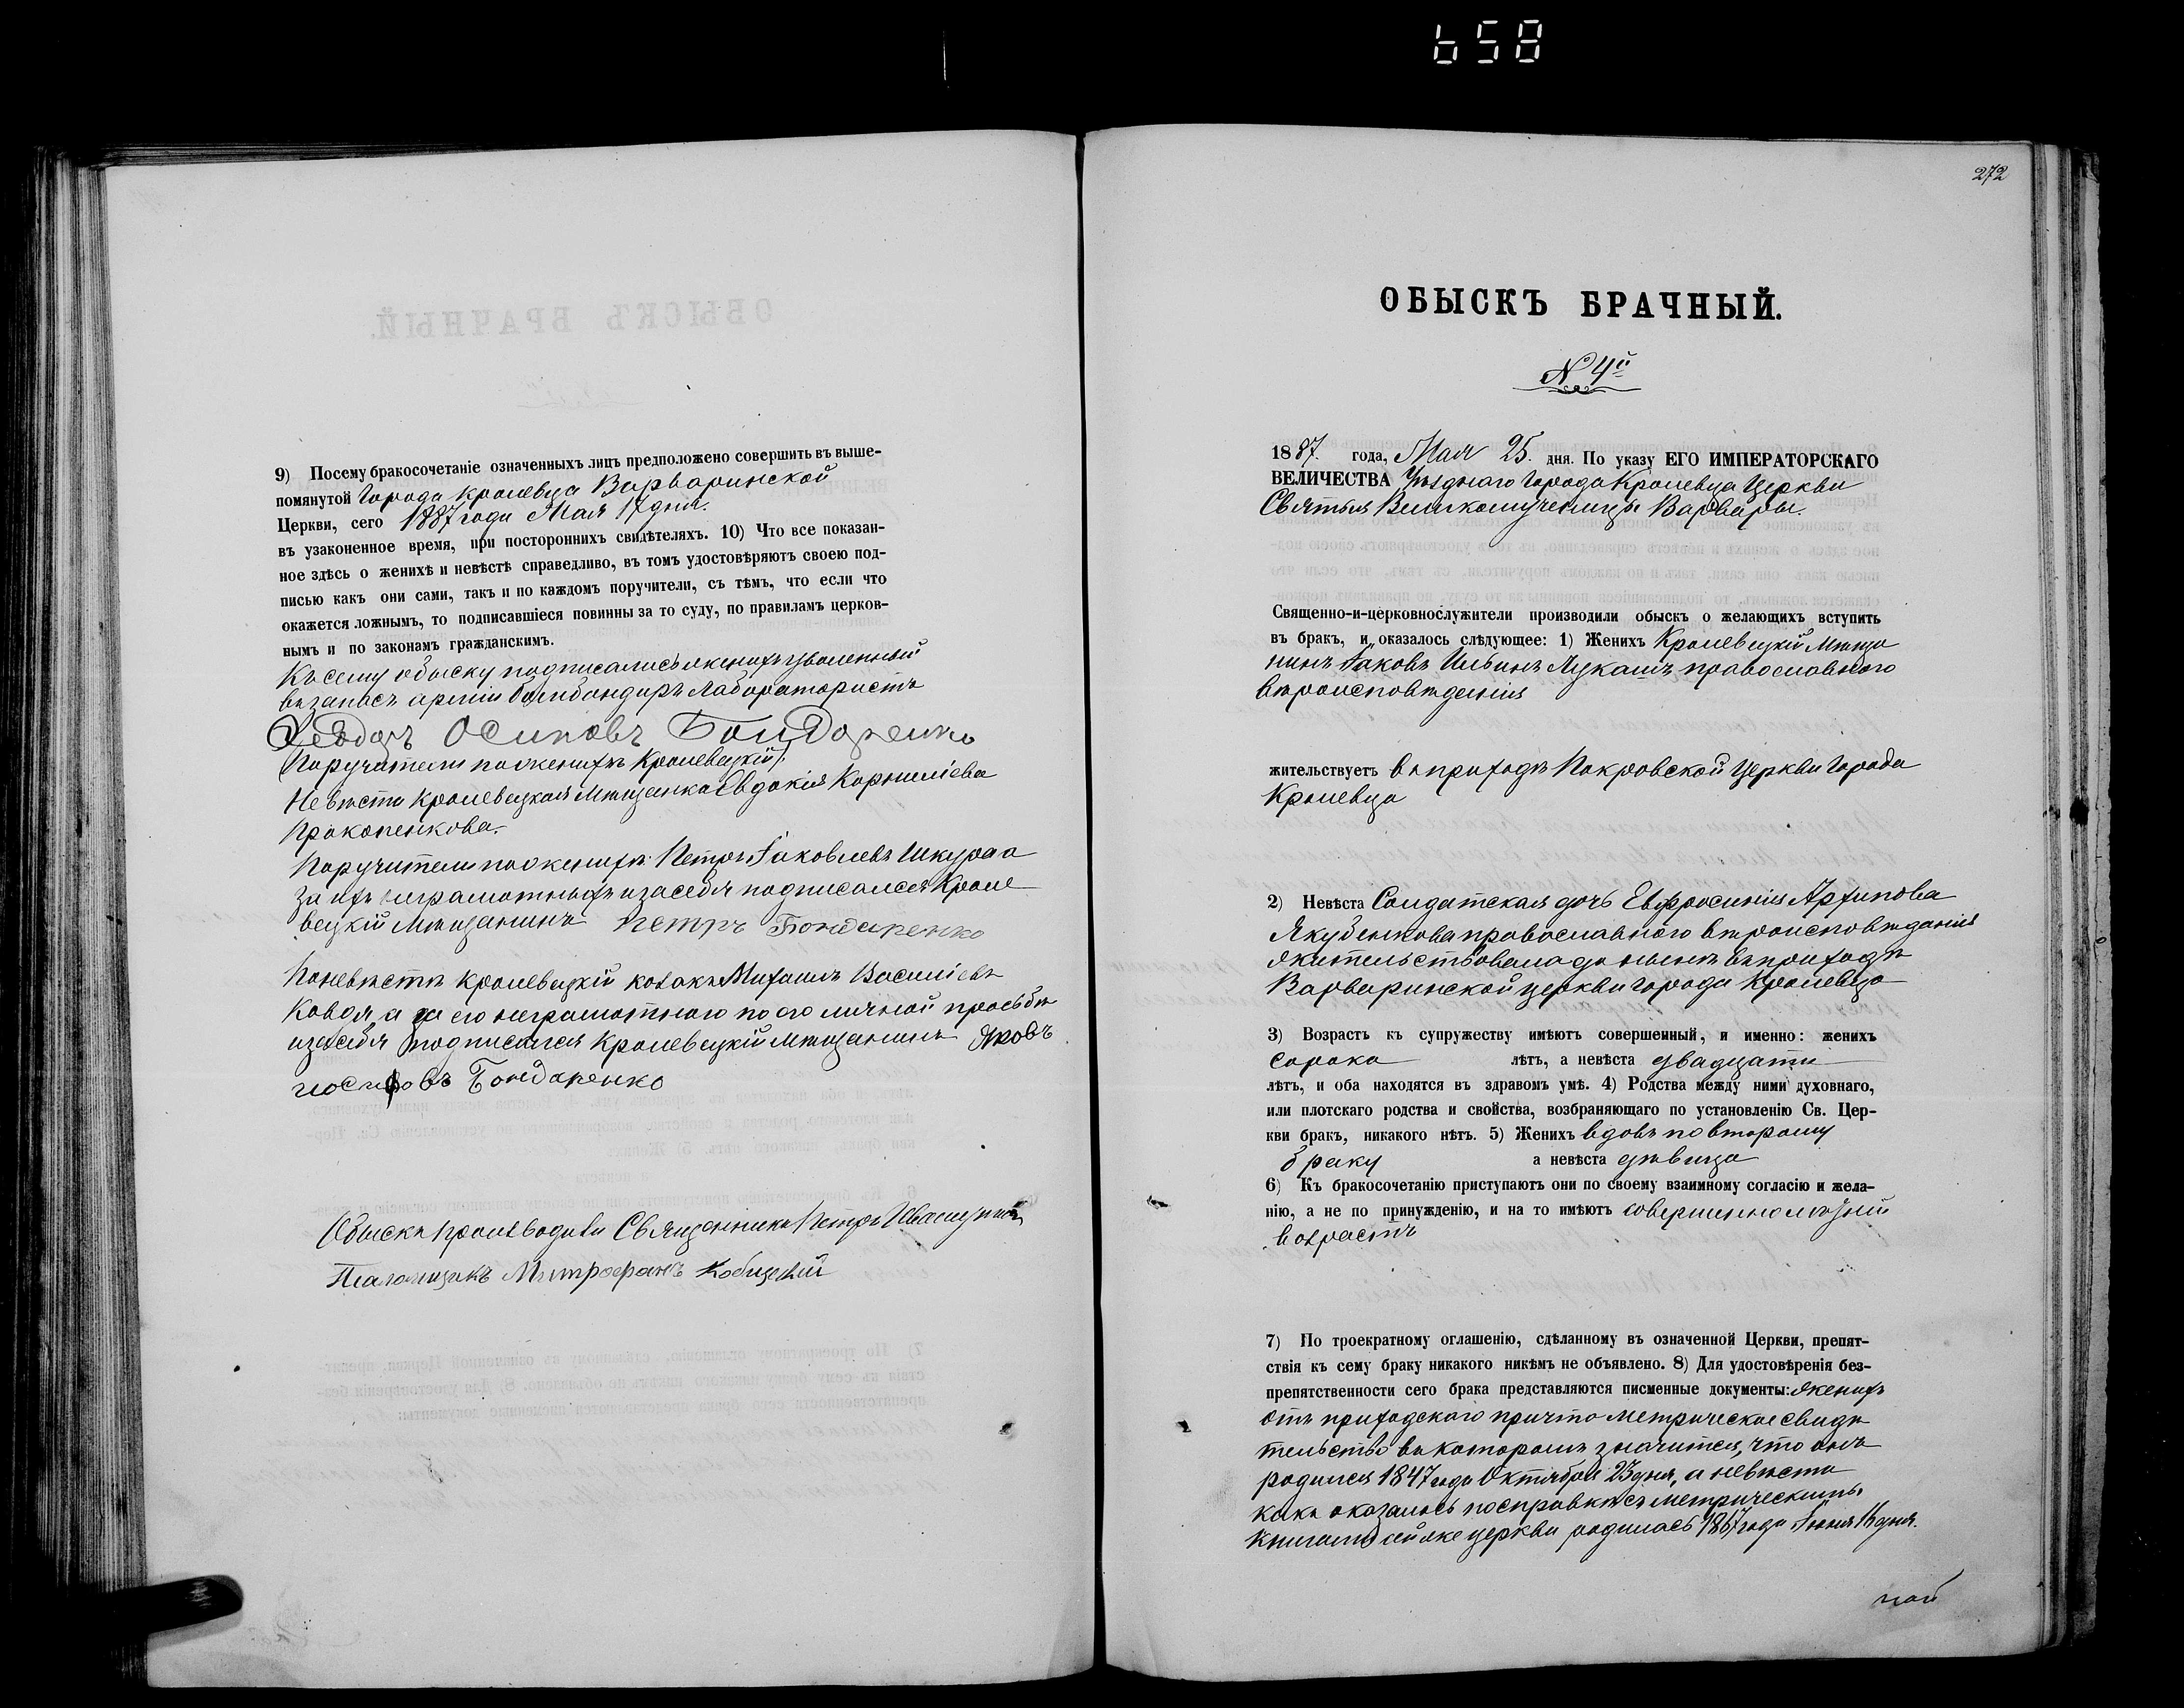 658
9) Посему бракосочетаніе означенныхъ лицъ предположено совершить въ выше-
помянутой Города Кролевца Варваринской
Церкви, сего 1887 года Мая 17 дня.
въ узаконенное время, при постороннихъ свидѣтеляхъ. 10) Что все показан-
ное здѣсь о женихѣ и невѣстѣ справедливо, въ томъ удостовѣряютъ своею под-
писью какъ они сами, такъ и по каждомъ поручители, съ тѣмъ, что если что
окажется ложнымъ, то подписавшіеся повинны за то суду, по правиламъ церков-
нымъ и по законамъ гражданскимъ.
Къ сему обыску подписались женихъ уволенный
въ запасъ арміи бомбандиръ лаборатористъ
Ѳеодоръ Осиповъ Бондаренко
Поручители по женихѣ Кролевецкій
Невѣста Кролевецкая Мѣщанка Евдокія Корниліева
Прокопенкова.
Поручители по женихѣ Петръ Іаковлевъ Шкура а
за ихъ неграмотныхъ и за себя подписался Кроле
вецкій Мѣщанинъ Петръ Бондаренко
По невѣстѣ Кролевецкій козакъ Михаилъ Василіевъ
Коваль а за его неграмотного по его личной просьбѣ
и за себя подписался Кролевецкій Мѣщанинъ Яковъ
Іосифовъ Бондаренко
Обыскъ производили Священникъ Петръ
Псаломщикъ Митрофанъ Кобищскій
272
ОБЫСКЪ БРАЧНЫЙ.
№ 4й
1887. года, Мая 25. дня. По указу ЕГО ИМПЕРАТОРСКАГО
ВЕЛИЧЕСТВА Уѣзднаго Города Кролевца Церкви
Святыя Великомученицы Варвары.
Священно-и-церковнослужители производили обыскъ о желающихъ вступить
въ бракъ, и оказалось слѣдующее: 1) Женихъ Кролевецкій Мѣща
нинъ Іаковъ Ильинъ Лукашъ православного
вѣроисповѣданія
жительствуетъ въ приходѣ Покровской Церкви Города
Кролевца
2) Невѣста Солдатская дочь Евфросинія Архипова
Якубенкова православного вѣроисповѣданія
жительствовала до нынѣ въ приходѣ
Варваринской церкви города Кролевца
3) Возрастъ къ супружеству имѣютъ совершенный, и именно: женихъ
сорока лѣтъ, а невѣста двадцати
лѣтъ, и оба находятся въ здравомъ умѣ. 4) Родства между ними духовнаго,
или плотскаго родства и свойства, возбраняющаго по установленію Св. Цер-
кви бракъ, никакого нѣтъ. 5) Женихъ вдовъ по второму
браку а невѣста дѣвица
6) Къ бракосочетанію приступаютъ они по своему взаимному согласію и жела-
нію, а не по принужденію, и на то имѣютъ совершеннолѣтній
возрастъ
7) По троекратному оглашенію, сдѣланному въ означенной Церкви, препят-
ствія къ сему браку никакого никѣмъ не объявлено. 8) Для удостовѣренія без-
препятственности сего брака представляются писменные документы: женихъ
отъ приходского причта метрическое свидѣ
тельство въ которомъ значится, что онъ
родился 1847 года Октября 23 дня, а невѣста
какъ оказалось по справкѣ съ метрическимъ
книгами сей же церкви родилась 1867 года Іюня 16 дня.